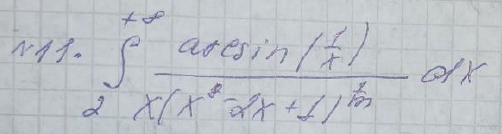 №11. ∫₂^{+∞} arcsin(1/x) / (x(x² - 2x + 1)^{1/m}) dx